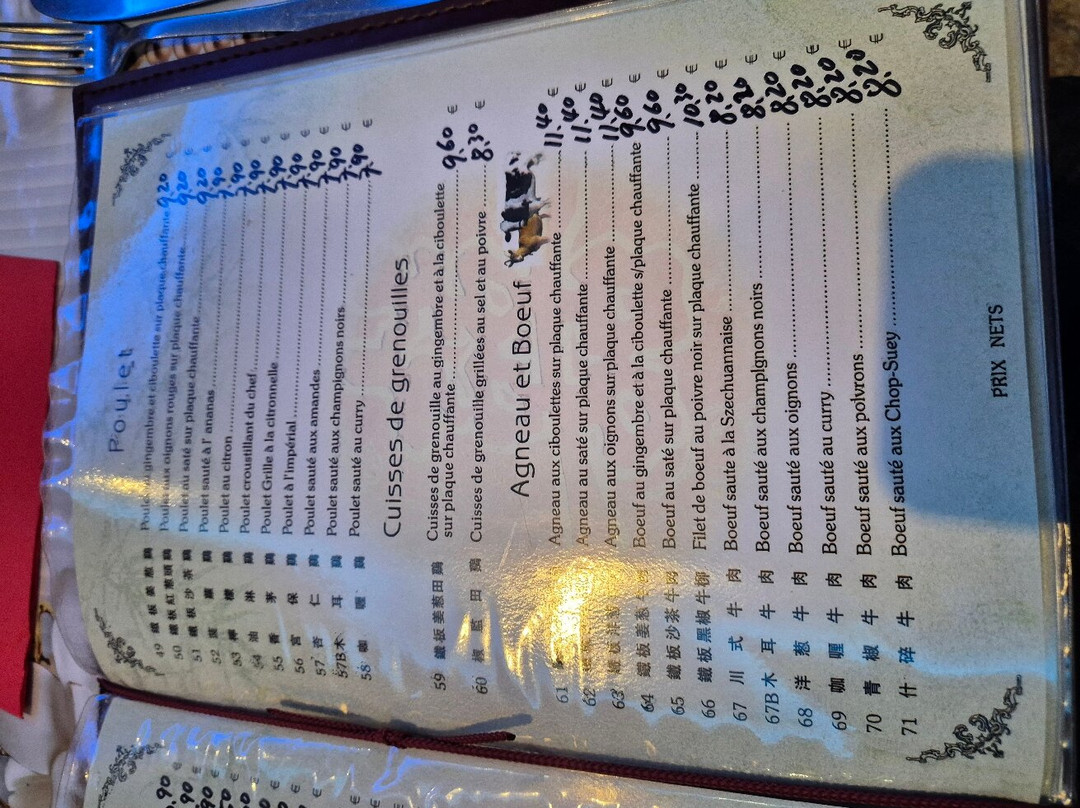 Poulet
49 鐵板姜葱鷄 Poulet au gingembre et ciboulette sur plaque chauffante 9.20 €
50 鐵板紅葱頭鷄 Poulet aux oignons rouges sur plaque chauffante 9.20 €
51 鐵板沙茶鷄 Poulet au saté sur plaque chauffante 9.20 €
52 鷄 Poulet sauté à l' ananas 7.90 €
53 檸鷄 Poulet au citron 7.90 €
54 油淋鷄 Poulet croustillant du chef 7.90 €
55 香茅鷄 Poulet Grille à la citronnelle 7.90 €
56 宮保鷄 Poulet à l'impérial 7.90 €
57 杏仁鷄 Poulet sauté aux amandes 7.90 €
57B 木耳鷄 Poulet sauté aux champignons noirs 7.90 €
58 咖喱鷄 Poulet sauté au curry 7.90 €
Cuisses de grenouilles
59 鐵板姜葱田鷄 Cuisses de grenouille au gingembre et à la ciboulette
sur plaque chauffante 9.60 €
60 椒鹽田鷄 Cuisses de grenouille grillées au sel et au poivre 8.30 €
Agneau et Boeuf
61 Agneau aux ciboulettes sur plaque chauffante 11.40 €
62 Agneau au saté sur plaque chauffante 11.40 €
63 Agneau aux oignons sur plaque chauffante 11.40 €
64 鐵板姜葱牛 Boeuf au gingembre et à la ciboulette s/plaque chauffante 9.60 €
65 鐵板沙茶牛肉 Boeuf au saté sur plaque chauffante 9.60 €
66 鐵板黑椒牛柳 Filet de boeuf au poivre noir sur plaque chauffante 10.30 €
67 川式牛肉 Boeuf saute à la Szechuannaise 8.20 €
67B 木耳牛肉 Boeuf sauté aux champIgnons noirs 8.20 €
68 洋葱牛肉 Boeuf sauté aux oignons 8.20 €
69 咖喱牛肉 Boeuf sauté au curry 8.20 €
70 青椒牛肉 Boeuf sauté aux poivrons 8.20 €
71 什碎牛肉 Boeuf sauté aux Chop-Suey 8.20 €
PRIX NETS